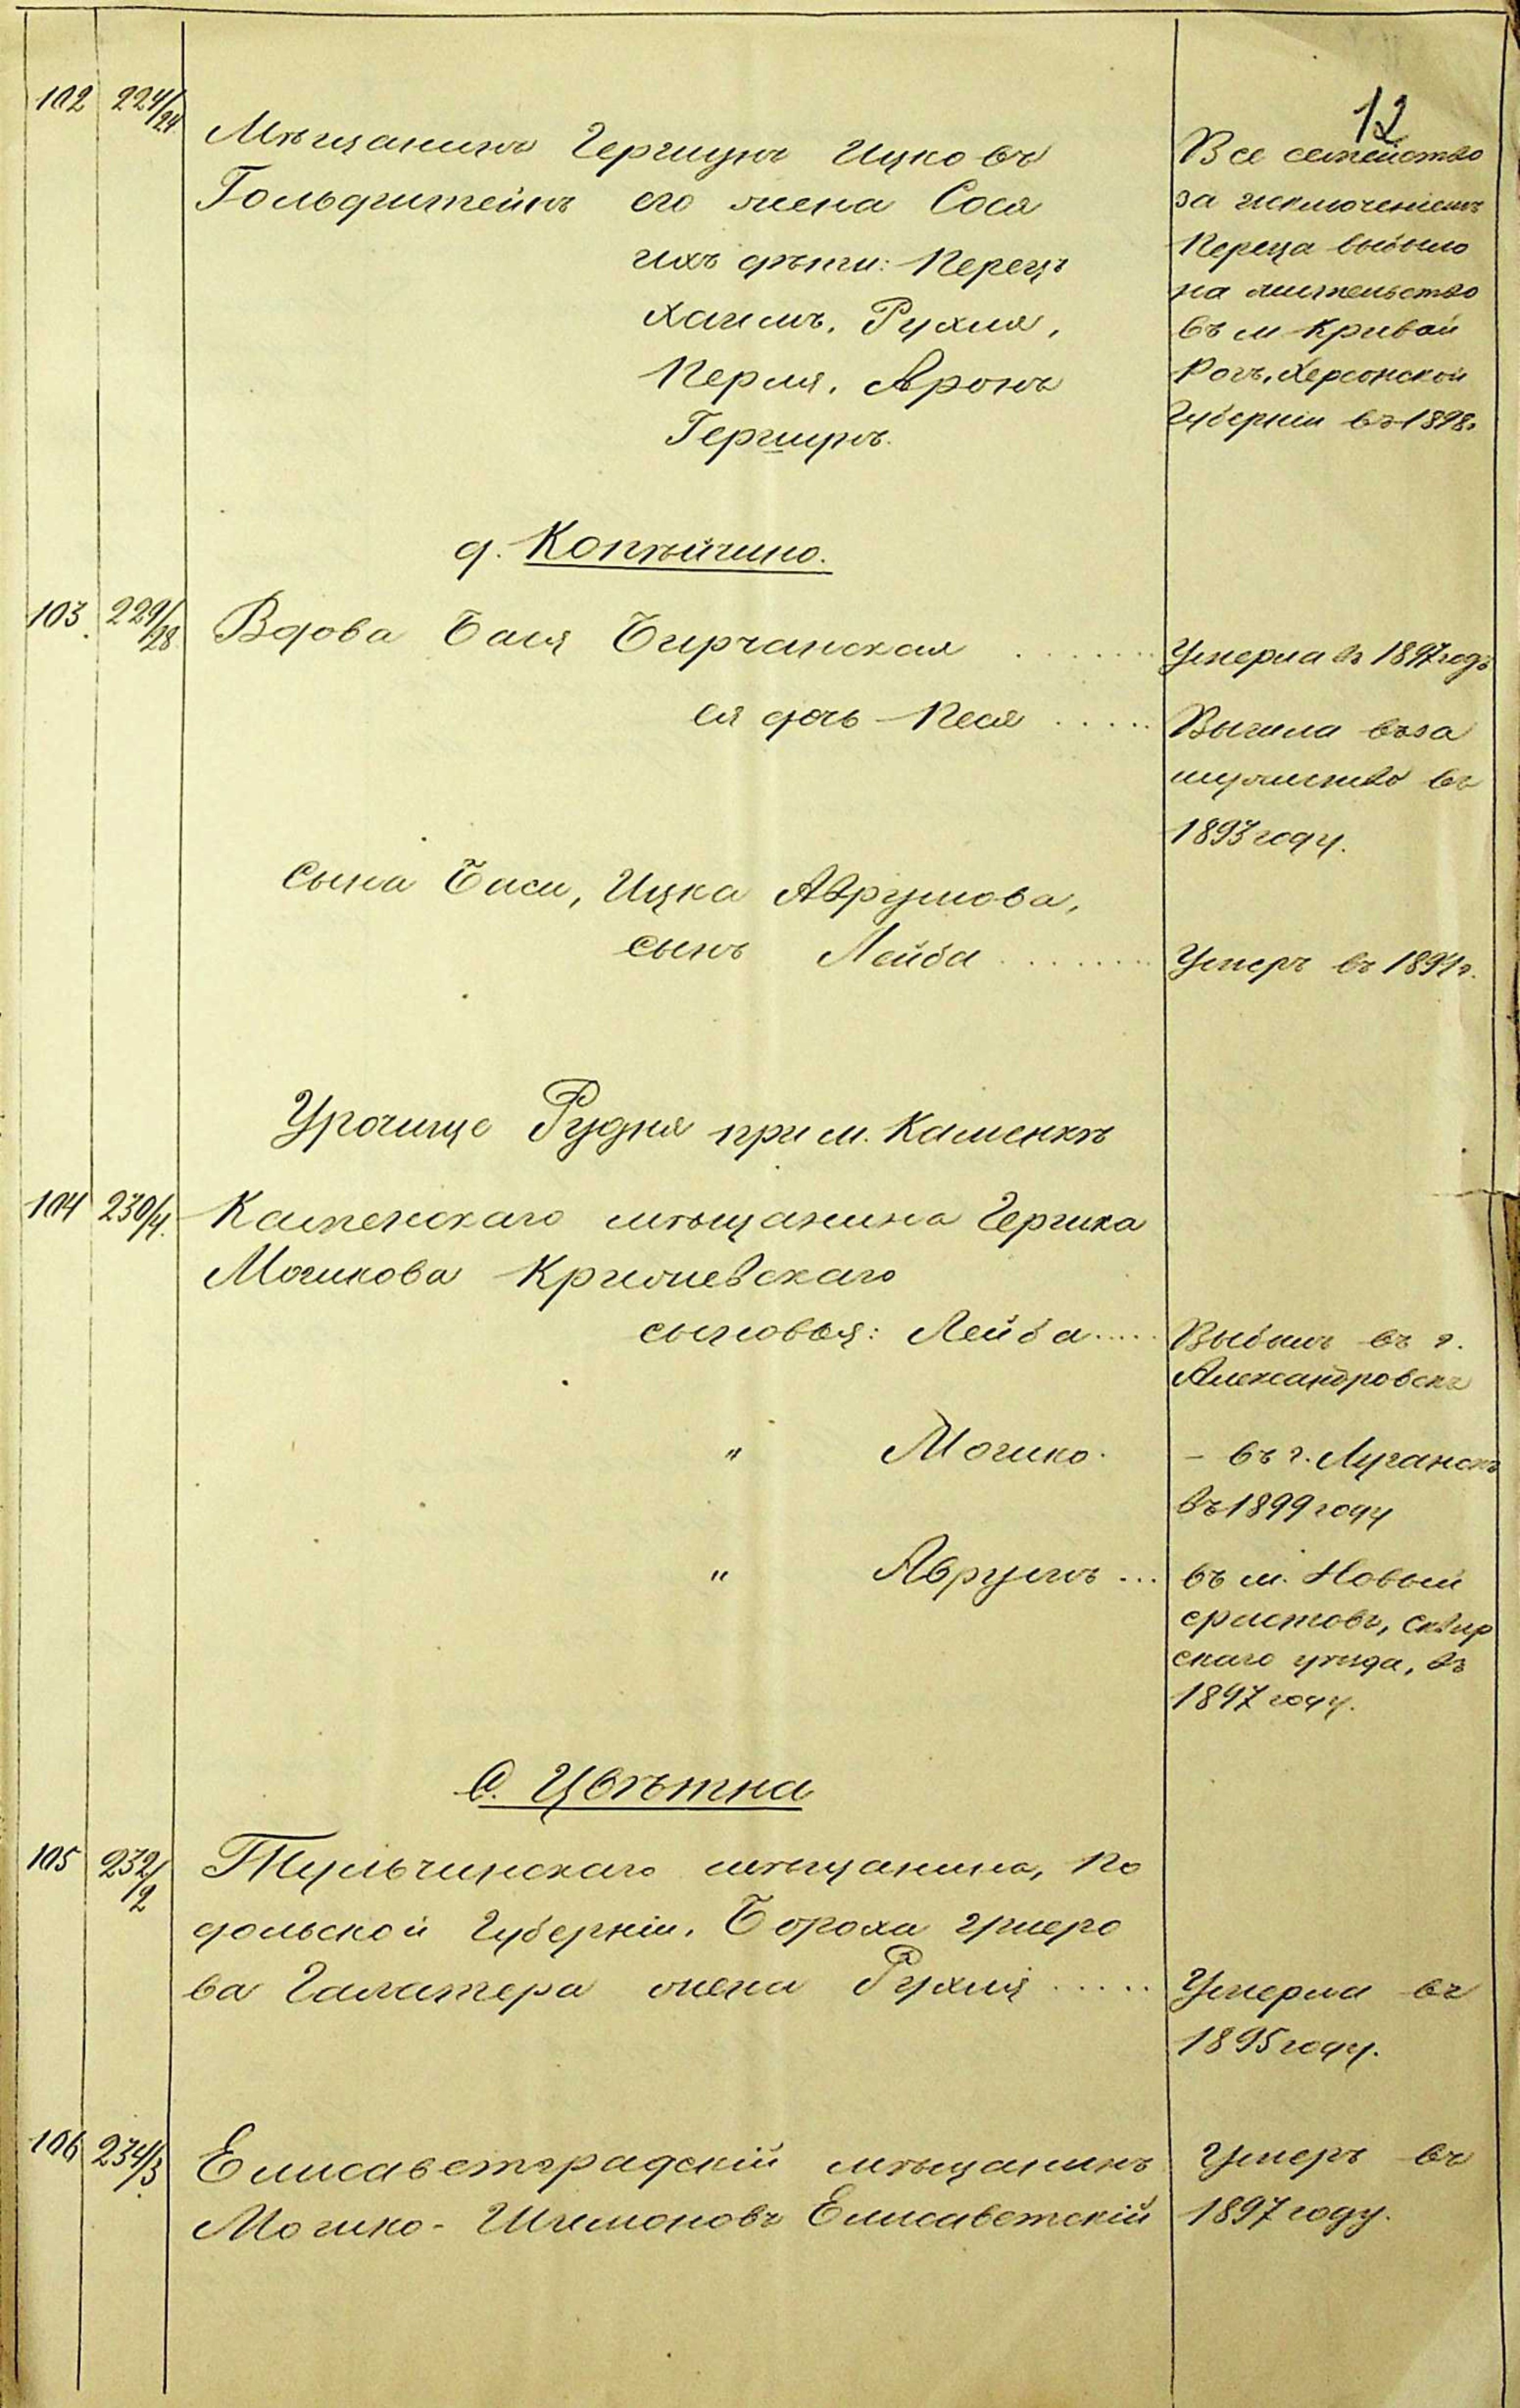 12
102 224/24
Мѣщанинъ Гершунъ Ицковъ
Гольдштейнъ его жена Сося
ихъ дѣти: Перецъ
Хаимъ, Рухля,
Перля, Аронъ
Гершунъ.
Все семейство
за исключеніемъ
Переца выбыло
на жительство
въ м Кривой
Рогъ, Херсонской
Губерніи въ 1898.
д. Копѣйчино.
103. 229/28
Вдова Бася Бирчанская .......
Умерла въ 1897 годъ
ея дочь Песя .....
Вышла въ за
мужество въ
1893 году.
сына Баси, Ицка Аврумова,
сынъ Лейба ........
Умеръ въ 1891 г.
Урочище Рудня при м. Каменкѣ
104 230/4.
Каменскаго мѣщанина Гершка
Мошкова Крижевскаго
сыновья: Лейба.....
Выбылъ въ г.
Александровскъ
" Мошко.
– въ г. Луганскъ
въ 1899 году
" Аврумъ ...
въ м. Новый
фастовъ, сквир
скаго уѣзда, въ
1897 году.
С. Цвѣтна
105 232/2
Тульчинскаго мѣщанина, По
дольской Губерніи, Бороха
ва жена Рухля .....
Умерла въ
1895 году.
106 234/3.
Елисаветградскій мѣщанинъ
Мошко-Шимоновъ Елисаветскій
Умеръ въ
1897 году.